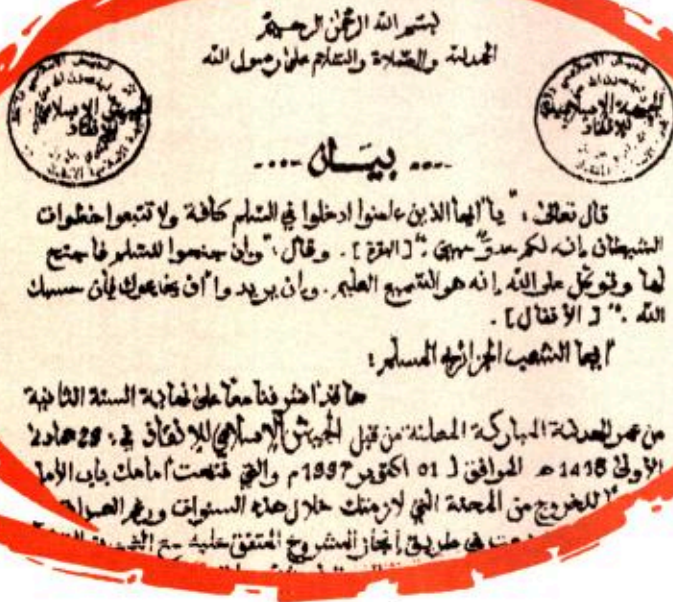 بسم الله الرحمن الرحيم
الحمد لله والصلاة والسلام على رسول الله
الجبهة الإسلامية
للإنقاذ
.... بيـــان ....
قال تعالى : " يا أيها الذين ءامنوا ادخلوا في السلم كافة ولا تتبعوا خطوات
الشيطان إنه لكم عدو مبين " [ البقرة ] . وقال : " وإن جنحوا للسلم فاجنح
لها وتوكل على الله إنه هو السميع العليم . وإن يريدوا أن يخدعوك فإن حسبك
الله . " [ الأنفال ] .
أيها الشعب الجزائري المسلم :
ها قد أشرفنا معا على نهاية السنة الثانية
من عمر الهدنة المباركة المعلنة من قبل الجيش الإسلامي للإنقاذ في : 29 جمادى
الأولى 1418 هـ الموافق لـ 01 أكتوبر 1997 م والتي فتحت أمامك باب
للخروج من المحنة التي لازمتك خلال هذه السنوات ورغم
في طريق إنجاز المشروع المتفق عليه مع